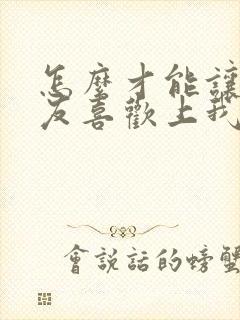 怎麼才能讓
友喜歡上我
會說話的螃蟹